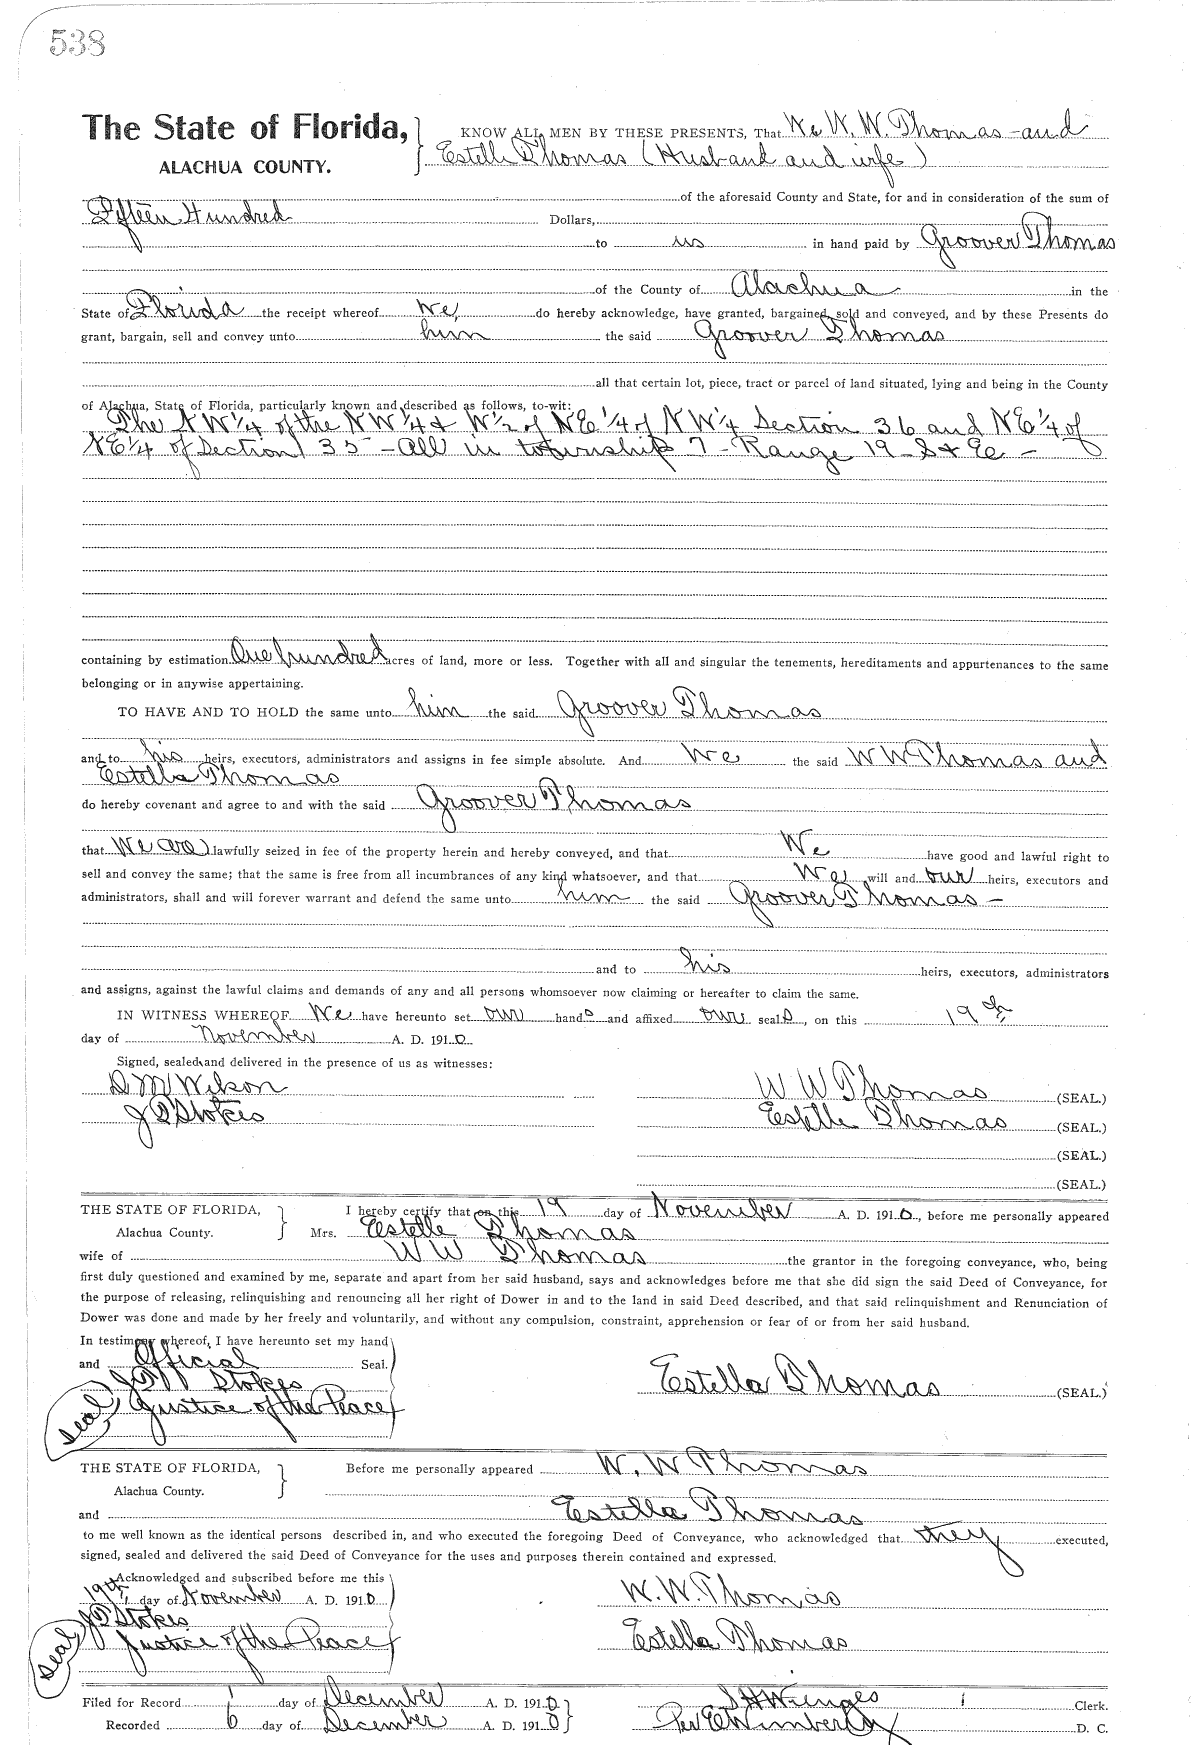 538
The State of Florida,
ALACHUA COUNTY.
KNOW ALL MEN BY THESE PRESENTS, That We W. W. Thomas and
Estelle Thomas (Husband and wife)
of the aforesaid County and State, for and in consideration of the sum of
Fifteen Hundred Dollars,
to us in hand paid by Groover Thomas
of the County of Alachua in the
State of Florida the receipt whereof We, do hereby acknowledge, have granted, bargained, sold and conveyed, and by these Presents do
grant, bargain, sell and convey unto him the said Groover Thomas
all that certain lot, piece, tract or parcel of land situated, lying and being in the County
of Alachua, State of Florida, particularly known and described as follows, to-wit:
The N W 1/4 of the N W 1/4 & W 1/2 of N E 1/4 of N W 1/4 Section 36 and N E 1/4 of
N E 1/4 of Section 35 - All in township 7 - Range 19 - S & E -
containing by estimation One hundred acres of land, more or less. Together with all and singular the tenements, hereditaments and appurtenances to the same
belonging or in anywise appertaining.
TO HAVE AND TO HOLD the same unto him the said Groover Thomas
and to his heirs, executors, administrators and assigns in fee simple absolute. And We the said W W Thomas and
Estella Thomas
do hereby covenant and agree to and with the said Groover Thomas
that We are lawfully seized in fee of the property herein and hereby conveyed, and that We have good and lawful right to
sell and convey the same; that the same is free from all incumbrances of any kind whatsoever, and that We will and our heirs, executors and
administrators, shall and will forever warrant and defend the same unto him the said Groover Thomas -
and to his heirs, executors, administrators
and assigns, against the lawful claims and demands of any and all persons whomsoever now claiming or hereafter to claim the same.
IN WITNESS WHEREOF We have hereunto set our hands and affixed our seals, on this 19th
day of November A. D. 1910
Signed, sealed and delivered in the presence of us as witnesses:
D M Wilson
J D Stokes
W W Thomas (SEAL.)
Estelle Thomas (SEAL.)
(SEAL.)
(SEAL.)
THE STATE OF FLORIDA,
Alachua County.
I hereby certify that on this 19 day of November A. D. 1910, before me personally appeared
Mrs. Estelle Thomas
wife of W W Thomas the grantor in the foregoing conveyance, who, being
first duly questioned and examined by me, separate and apart from her said husband, says and acknowledges before me that she did sign the said Deed of Conveyance, for
the purpose of releasing, relinquishing and renouncing all her right of Dower in and to the land in said Deed described, and that said relinquishment and Renunciation of
Dower was done and made by her freely and voluntarily, and without any compulsion, constraint, apprehension or fear of or from her said husband.
In testimony whereof, I have hereunto set my hand
and Official Seal.
Stokes
Seal Justice of the Peace
Estella Thomas (SEAL.)
THE STATE OF FLORIDA,
Alachua County.
Before me personally appeared W. W Thomas
and Estella Thomas
to me well known as the identical persons described in, and who executed the foregoing Deed of Conveyance, who acknowledged that they executed,
signed, sealed and delivered the said Deed of Conveyance for the uses and purposes therein contained and expressed.
Acknowledged and subscribed before me this
19th day of November A. D. 1910
J D Stokes
Seal Justice of the Peace
W. W. Thomas
Estella Thomas
Filed for Record 1 day of December A. D. 1910
Recorded 6 day of December A. D. 1910
S H Wienges Clerk.
Per E Wimberly D. C.